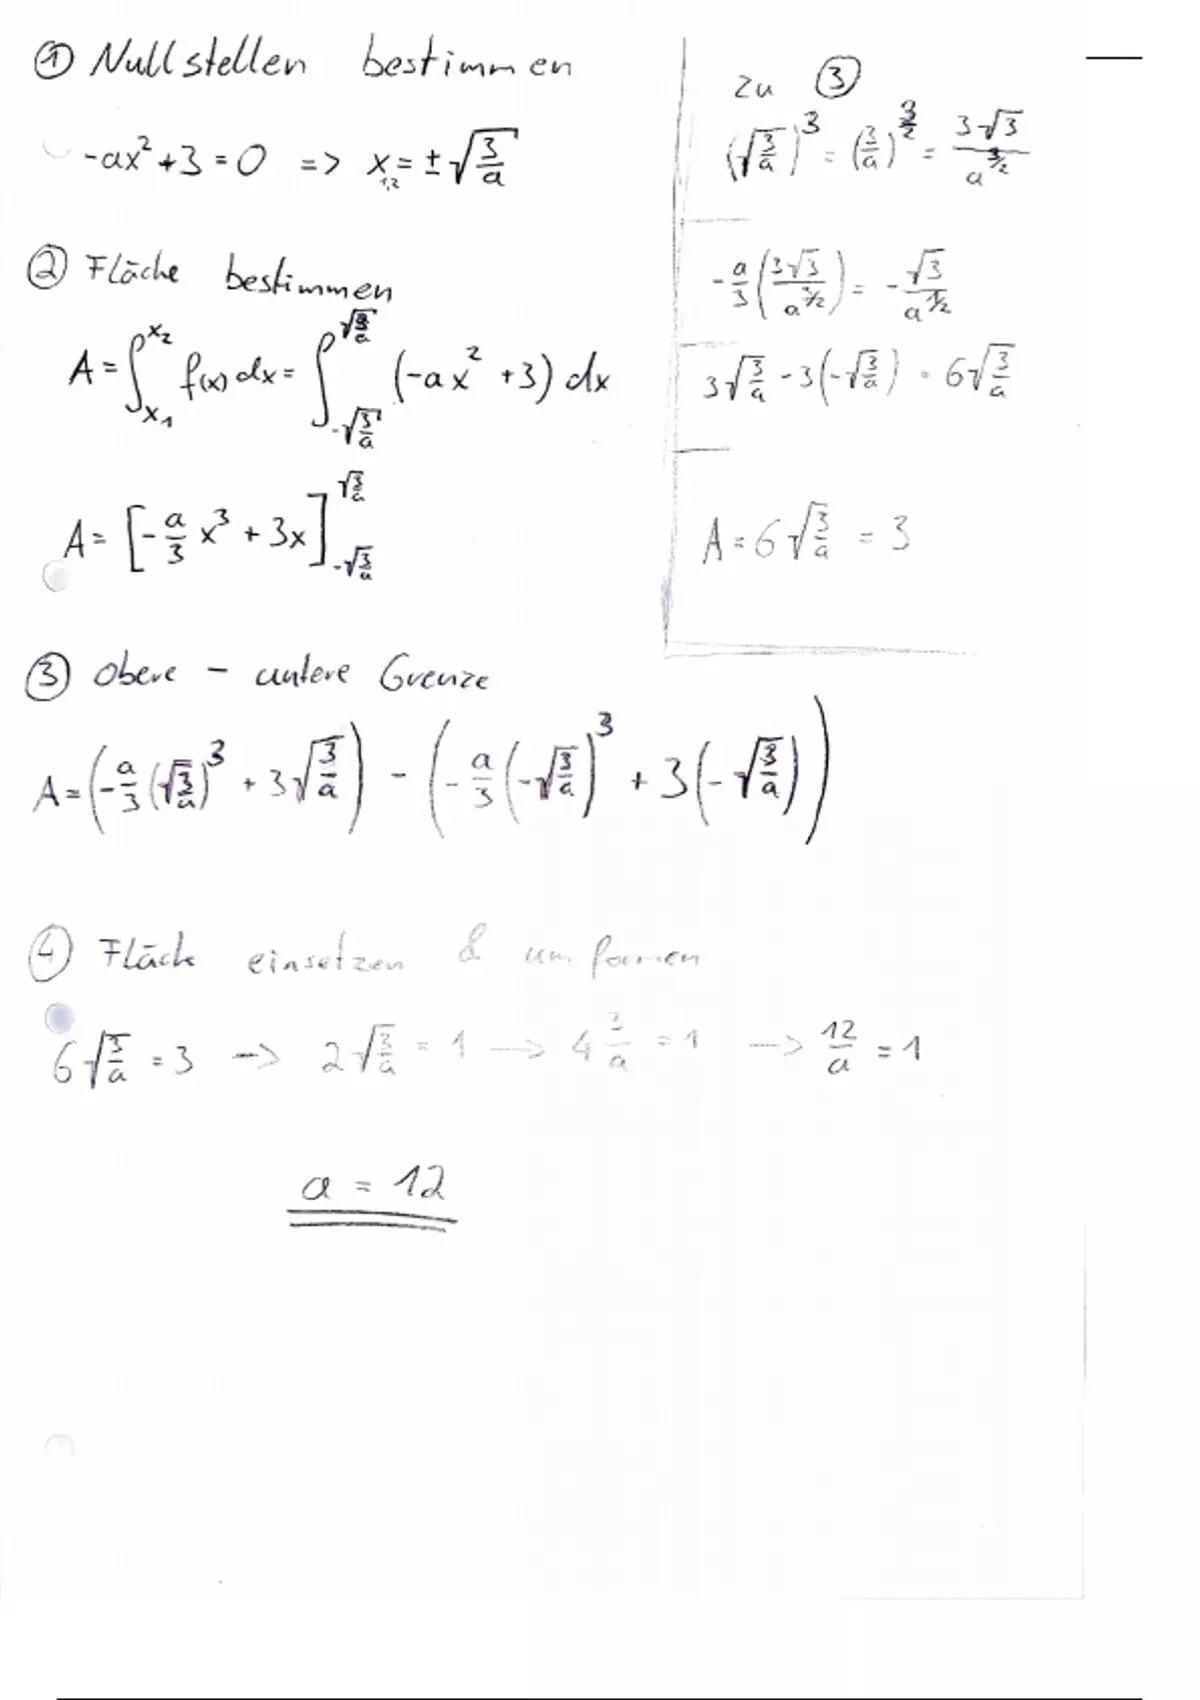 ① Nullstellen bestimmen
-ax² + 3 = 0 => x₁,₂ = ± √(3/a)
② Fläche bestimmen
A = ∫_{x₁}^{x₂} f(x) dx = ∫_{-√(3/a)}^{√(3/a)} (-ax² + 3) dx
A = [-a/3 x³ + 3x]_{-√(3/a)}^{√(3/a)}
zu ③
(√(3/a))³ = (3/a)^{3/2} = 3√3 / a^{3/2}
-a/3 (3√3 / a^{3/2}) = - √3 / a^{1/2}
3√(3/a) - 3(-√(3/a)) = 6√(3/a)
A = 6√(3/a) = 3
③ Obere - untere Grenze
A = (-a/3 (√(3/a))³ + 3√(3/a)) - (-a/3 (-√(3/a))³ + 3(-√(3/a)))
④ Fläche einsetzen & umformen
6√(3/a) = 3 --> 2√(3/a) = 1 --> 4 3/a = 1 --> 12/a = 1
a = 12